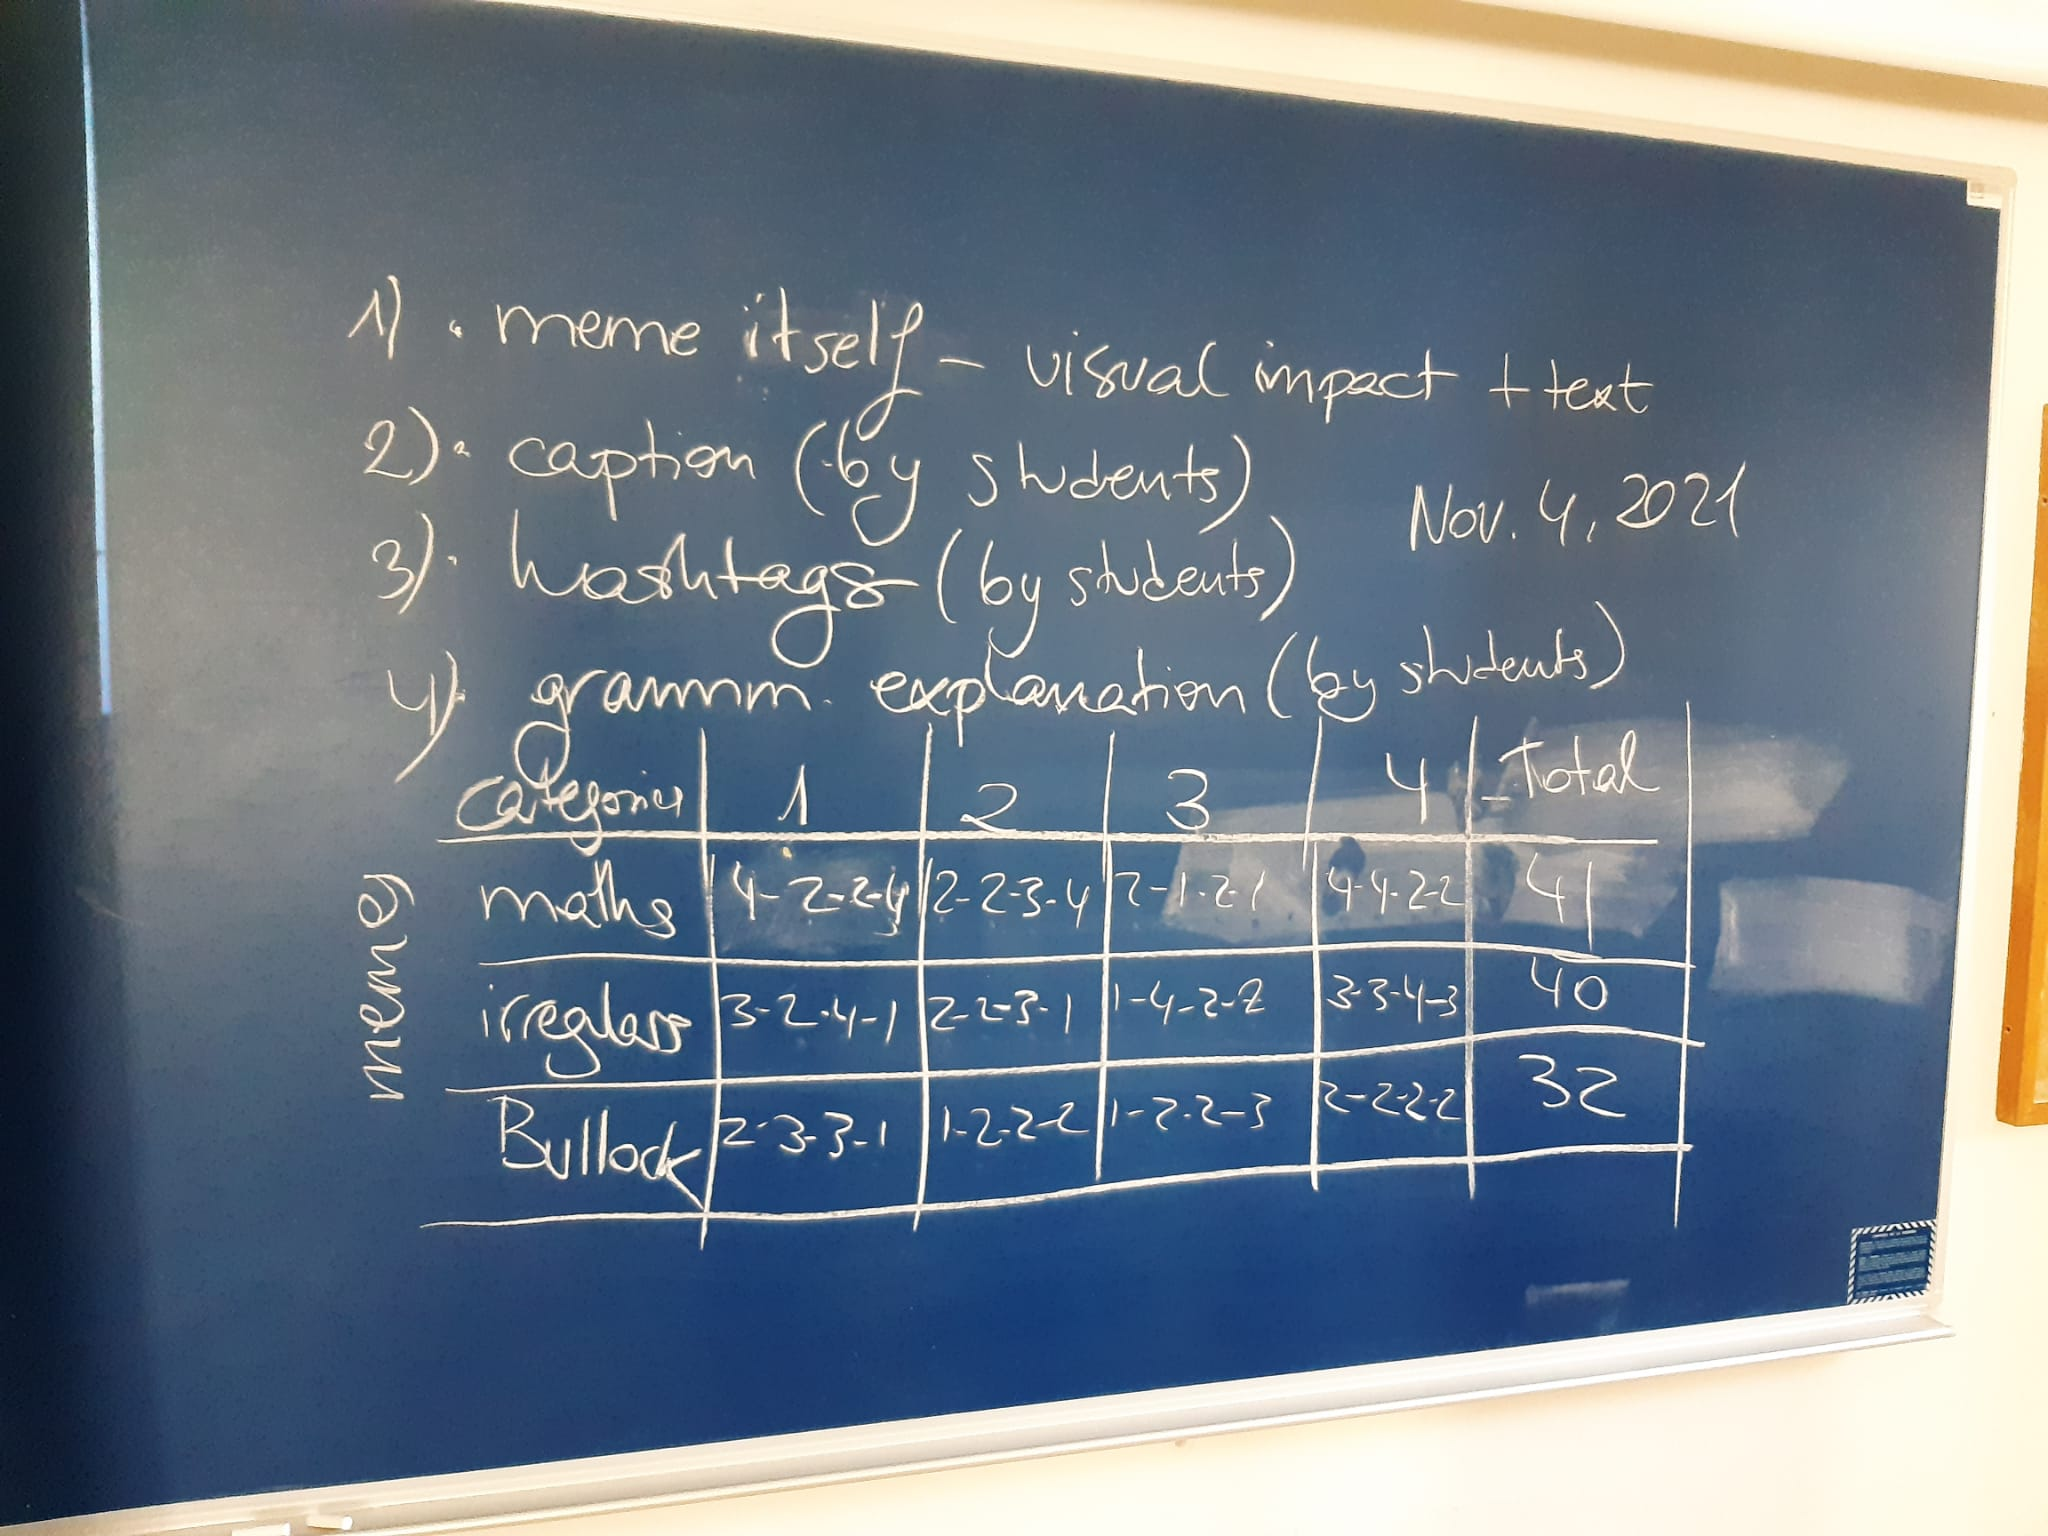 1) . meme itself – visual impact + text
2) . caption (by students)
Nov. 4, 2021
3) . hashtags (by students)
4) . gramm. explanation (by students)
categories 1 2 3 4 Total
memes
maths 4-2-2-4 2-2-3-4 2-1-2-1 4-4-2-2 41
irregulars 3-2-4-1 2-2-3-1 1-4-2-2 3-3-4-3 40
Bullock 2-3-3-1 1-2-2-2 1-2-2-3 2-2-2-2 32